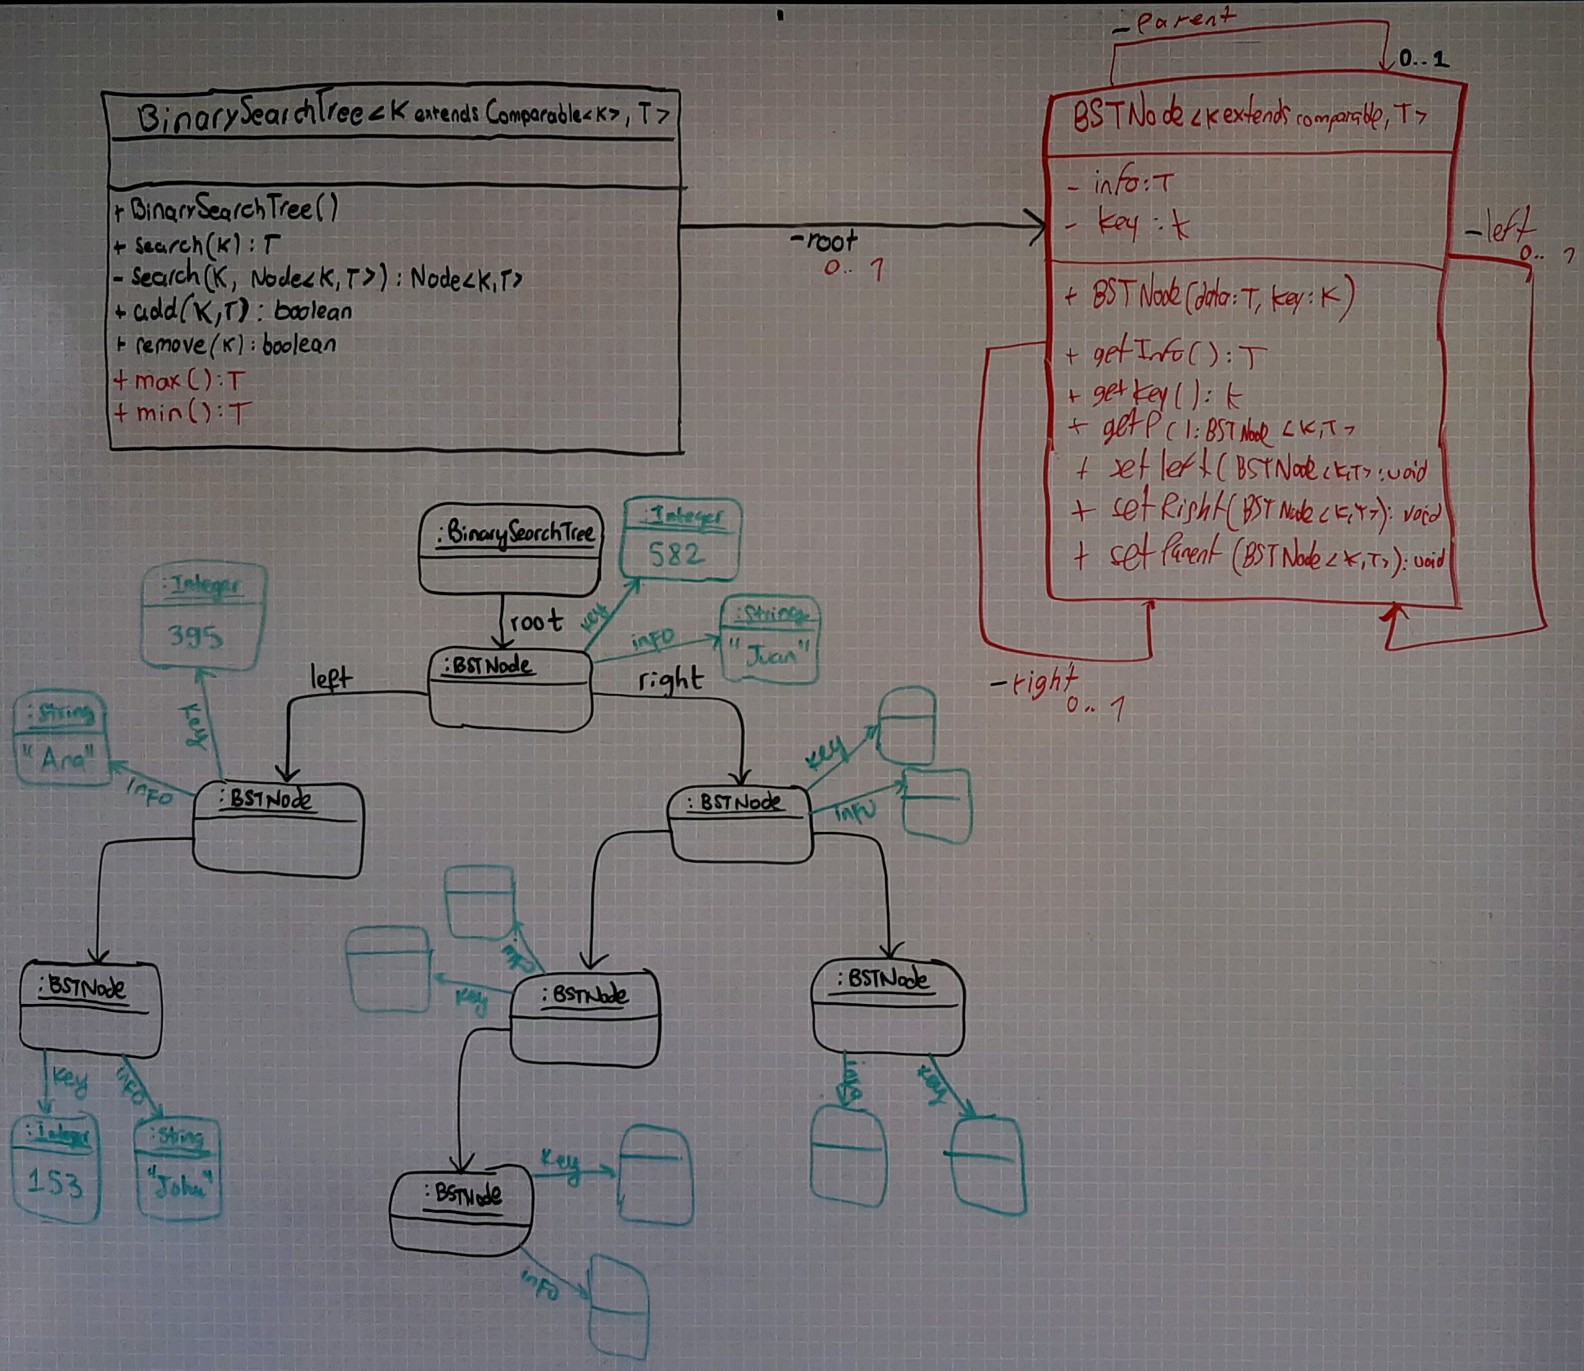 -Parent
0..1
BinarySearchTree<K extends Comparable<K>, T>
+ BinarySearchTree()
+ search(K) : T
- search(K, Node<K,T>) : Node<K,T>
+ add(K,T) : boolean
+ remove(K) : boolean
+ max() : T
+ min() : T
-root
0..1
BSTNode<K extends comparable, T>
- info : T
- key : k
+ BSTNode(data:T, key:K)
+ getInfo() : T
+ getKey() : k
+ getP() : BSTNode<K,T>
+ setleft(BSTNode<K,T> : void
+ setRight(BSTNode<K,T>) : void
+ setParent(BSTNode<K,T>) : void
-left
0..1
-right
0..1
:BinarySearchTree
root
:Integer
582
key
info
:String
"Juan"
:BSTNode
left
right
:Integer
395
key
:String
"Ana"
info
:BSTNode
:BSTNode
key
info
:BSTNode
key
info
:Integer
153
:String
"John"
info
key
:BSTNode
:BSTNode
info
key
:BSTNode
key
info